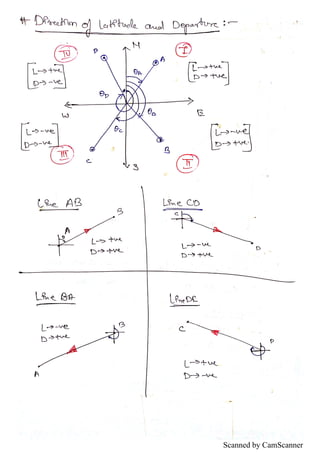 # Direction of Latitude and Departure :-
N
IV
I
D
A
L→+ve
D→-ve
L→+ve
D→+ve
θA
θD
θB
W
E
θC
L→-ve
D→-ve
L→-ve
D→+ve
III
C
S
B
II
Line AB
B
A
θ
L→+ve
D→+ve
Line CD
C
L→-ve
D→+ve
D
Line BA
L→-ve
D→+ve
B
A
Line DC
C
D
L→+ve
D→-ve
Scanned by CamScanner